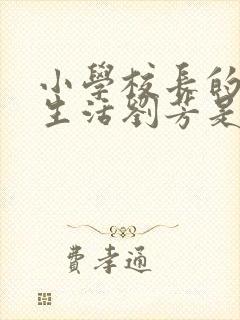 小學校長的
生活劉芳是
費孝通